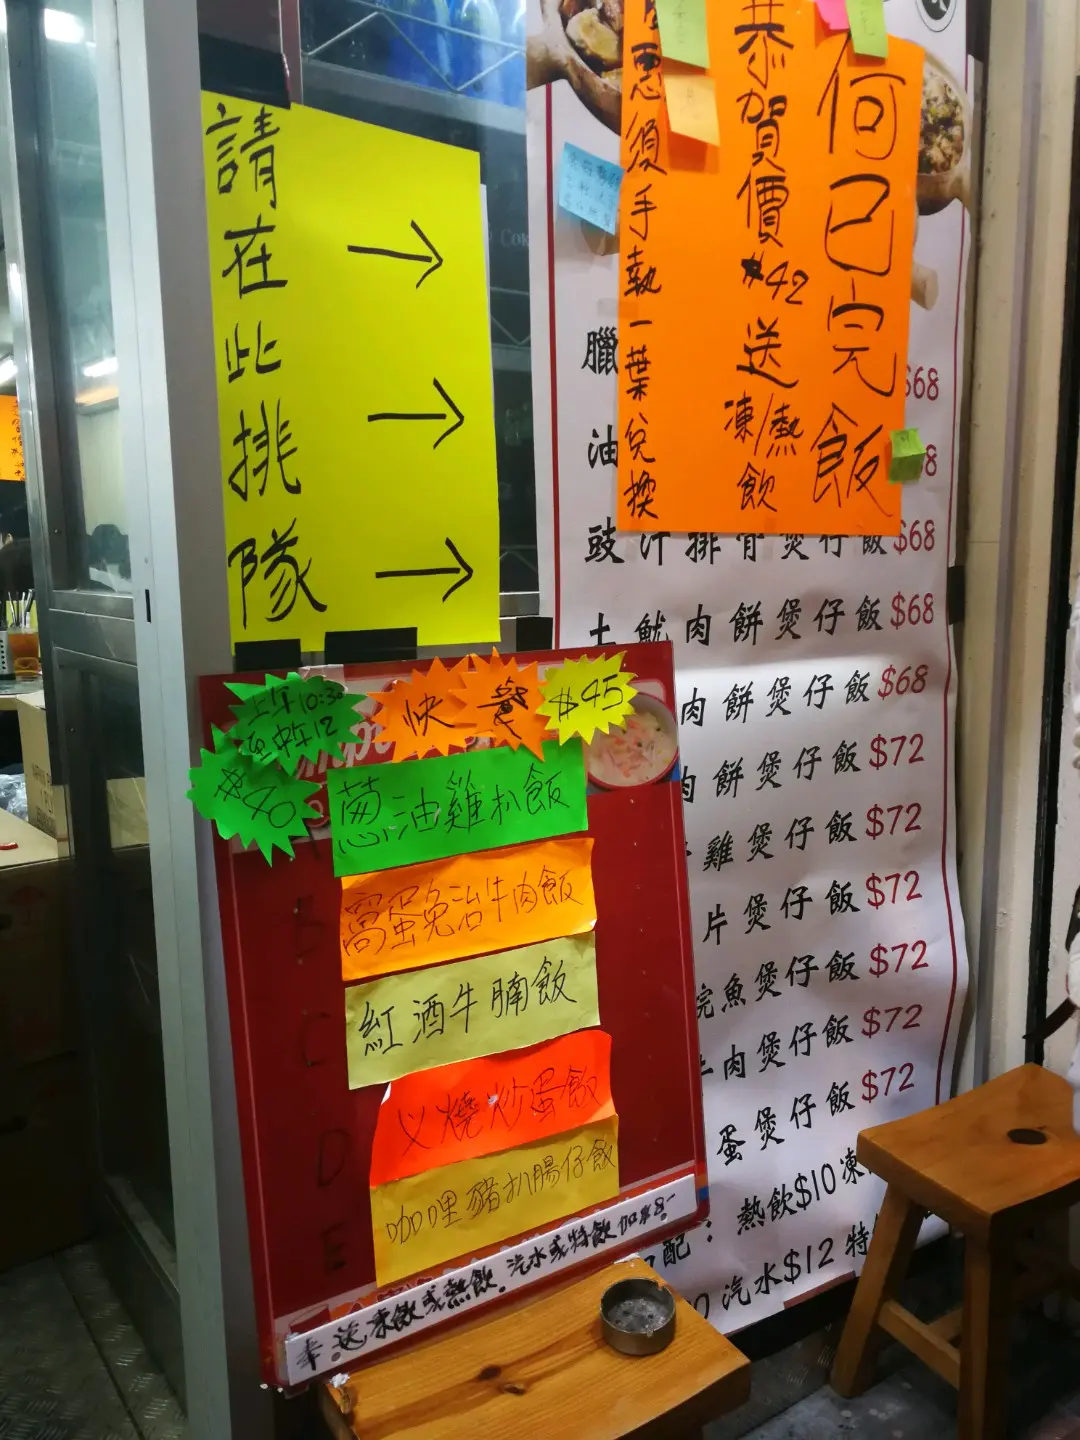 請在此排隊
何已完飯
恭賀價$42送凍/熱飲
惠須手執一葉兌換
臘
$68
油
8
豉汁排骨煲仔飯$68
土魷肉餅煲仔飯$68
肉餅煲仔飯$68
肉餅煲仔飯$72
雞煲仔飯$72
片煲仔飯$72
浣魚煲仔飯$72
牛肉煲仔飯$72
蛋煲仔飯$72
配：熱飲$10凍
汽水$12特
上午10:30
至中午12
$40
快餐
$45
葱油雞扒飯
窩蛋免治牛肉飯
紅酒牛腩飯
叉燒炒蛋飯
咖哩豬扒腸仔飯
B
C
D
E
幸送凍飲或熱飲.汽水或特飲加$8-